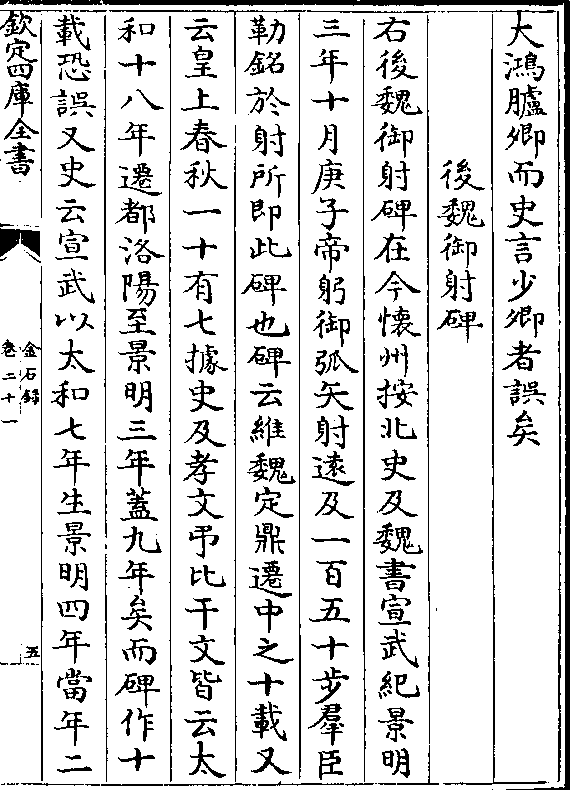 大鴻臚卿而史言少卿者誤矣
後魏御射碑
右後魏御射碑在今懷州按北史及魏書宣武紀景明
三年十月庚子帝躬御弧矢射遠及一百五十步羣臣
勒銘於射所即此碑也碑云維魏定鼎遷中之十載又
云皇上春秋一十有七據史及孝文弔比干文皆云太
和十八年遷都洛陽至景明三年蓋九年矣而碑作十
載恐誤又史云宣武以太和七年生景明四年當年二
欽定四庫全書
金石錄
卷二十一
五